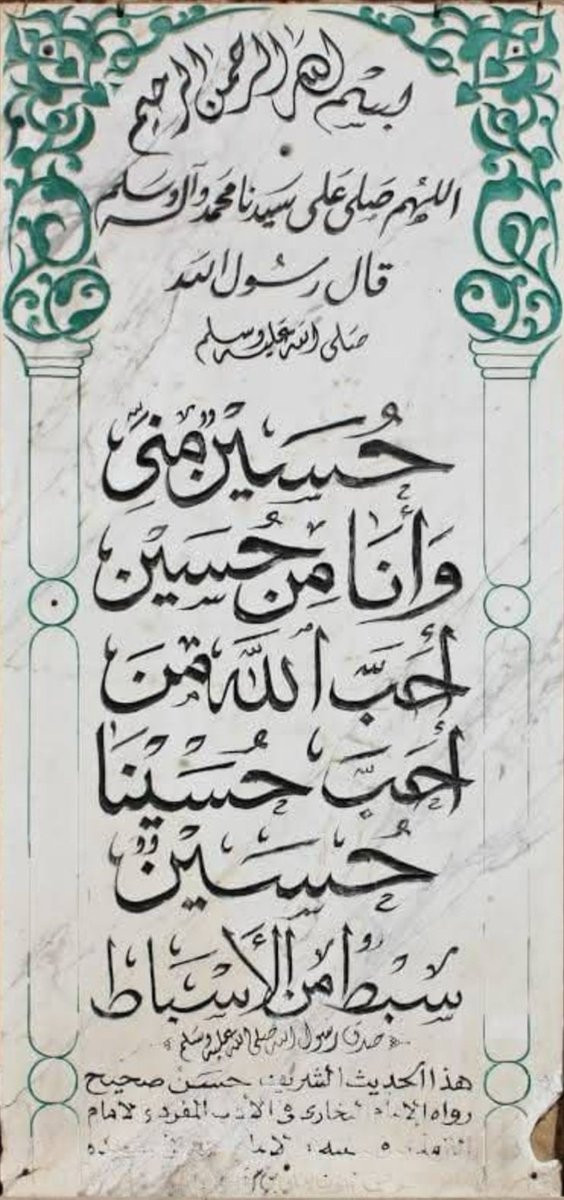 بسم الله الرحمن الرحيم
اللهم صلى على سيدنا محمد وآله وسلم
قال رسول الله
صلى الله عليه وسلم
حُسَينٌ مِنّي
وَأَنَا مِن حُسَين
أَحَبَّ اللَّهَ مَنَ
أَحَبَّ حُسَيْنَا
حُسَيْنٌ
سبطٌ من الأَسْبَاط
صدق رسول الله صلى الله عليه وسلم
هذا الحديث الشريف حسن صحيح
رواه الإمام البخارى فى الأدب المفرد والامام